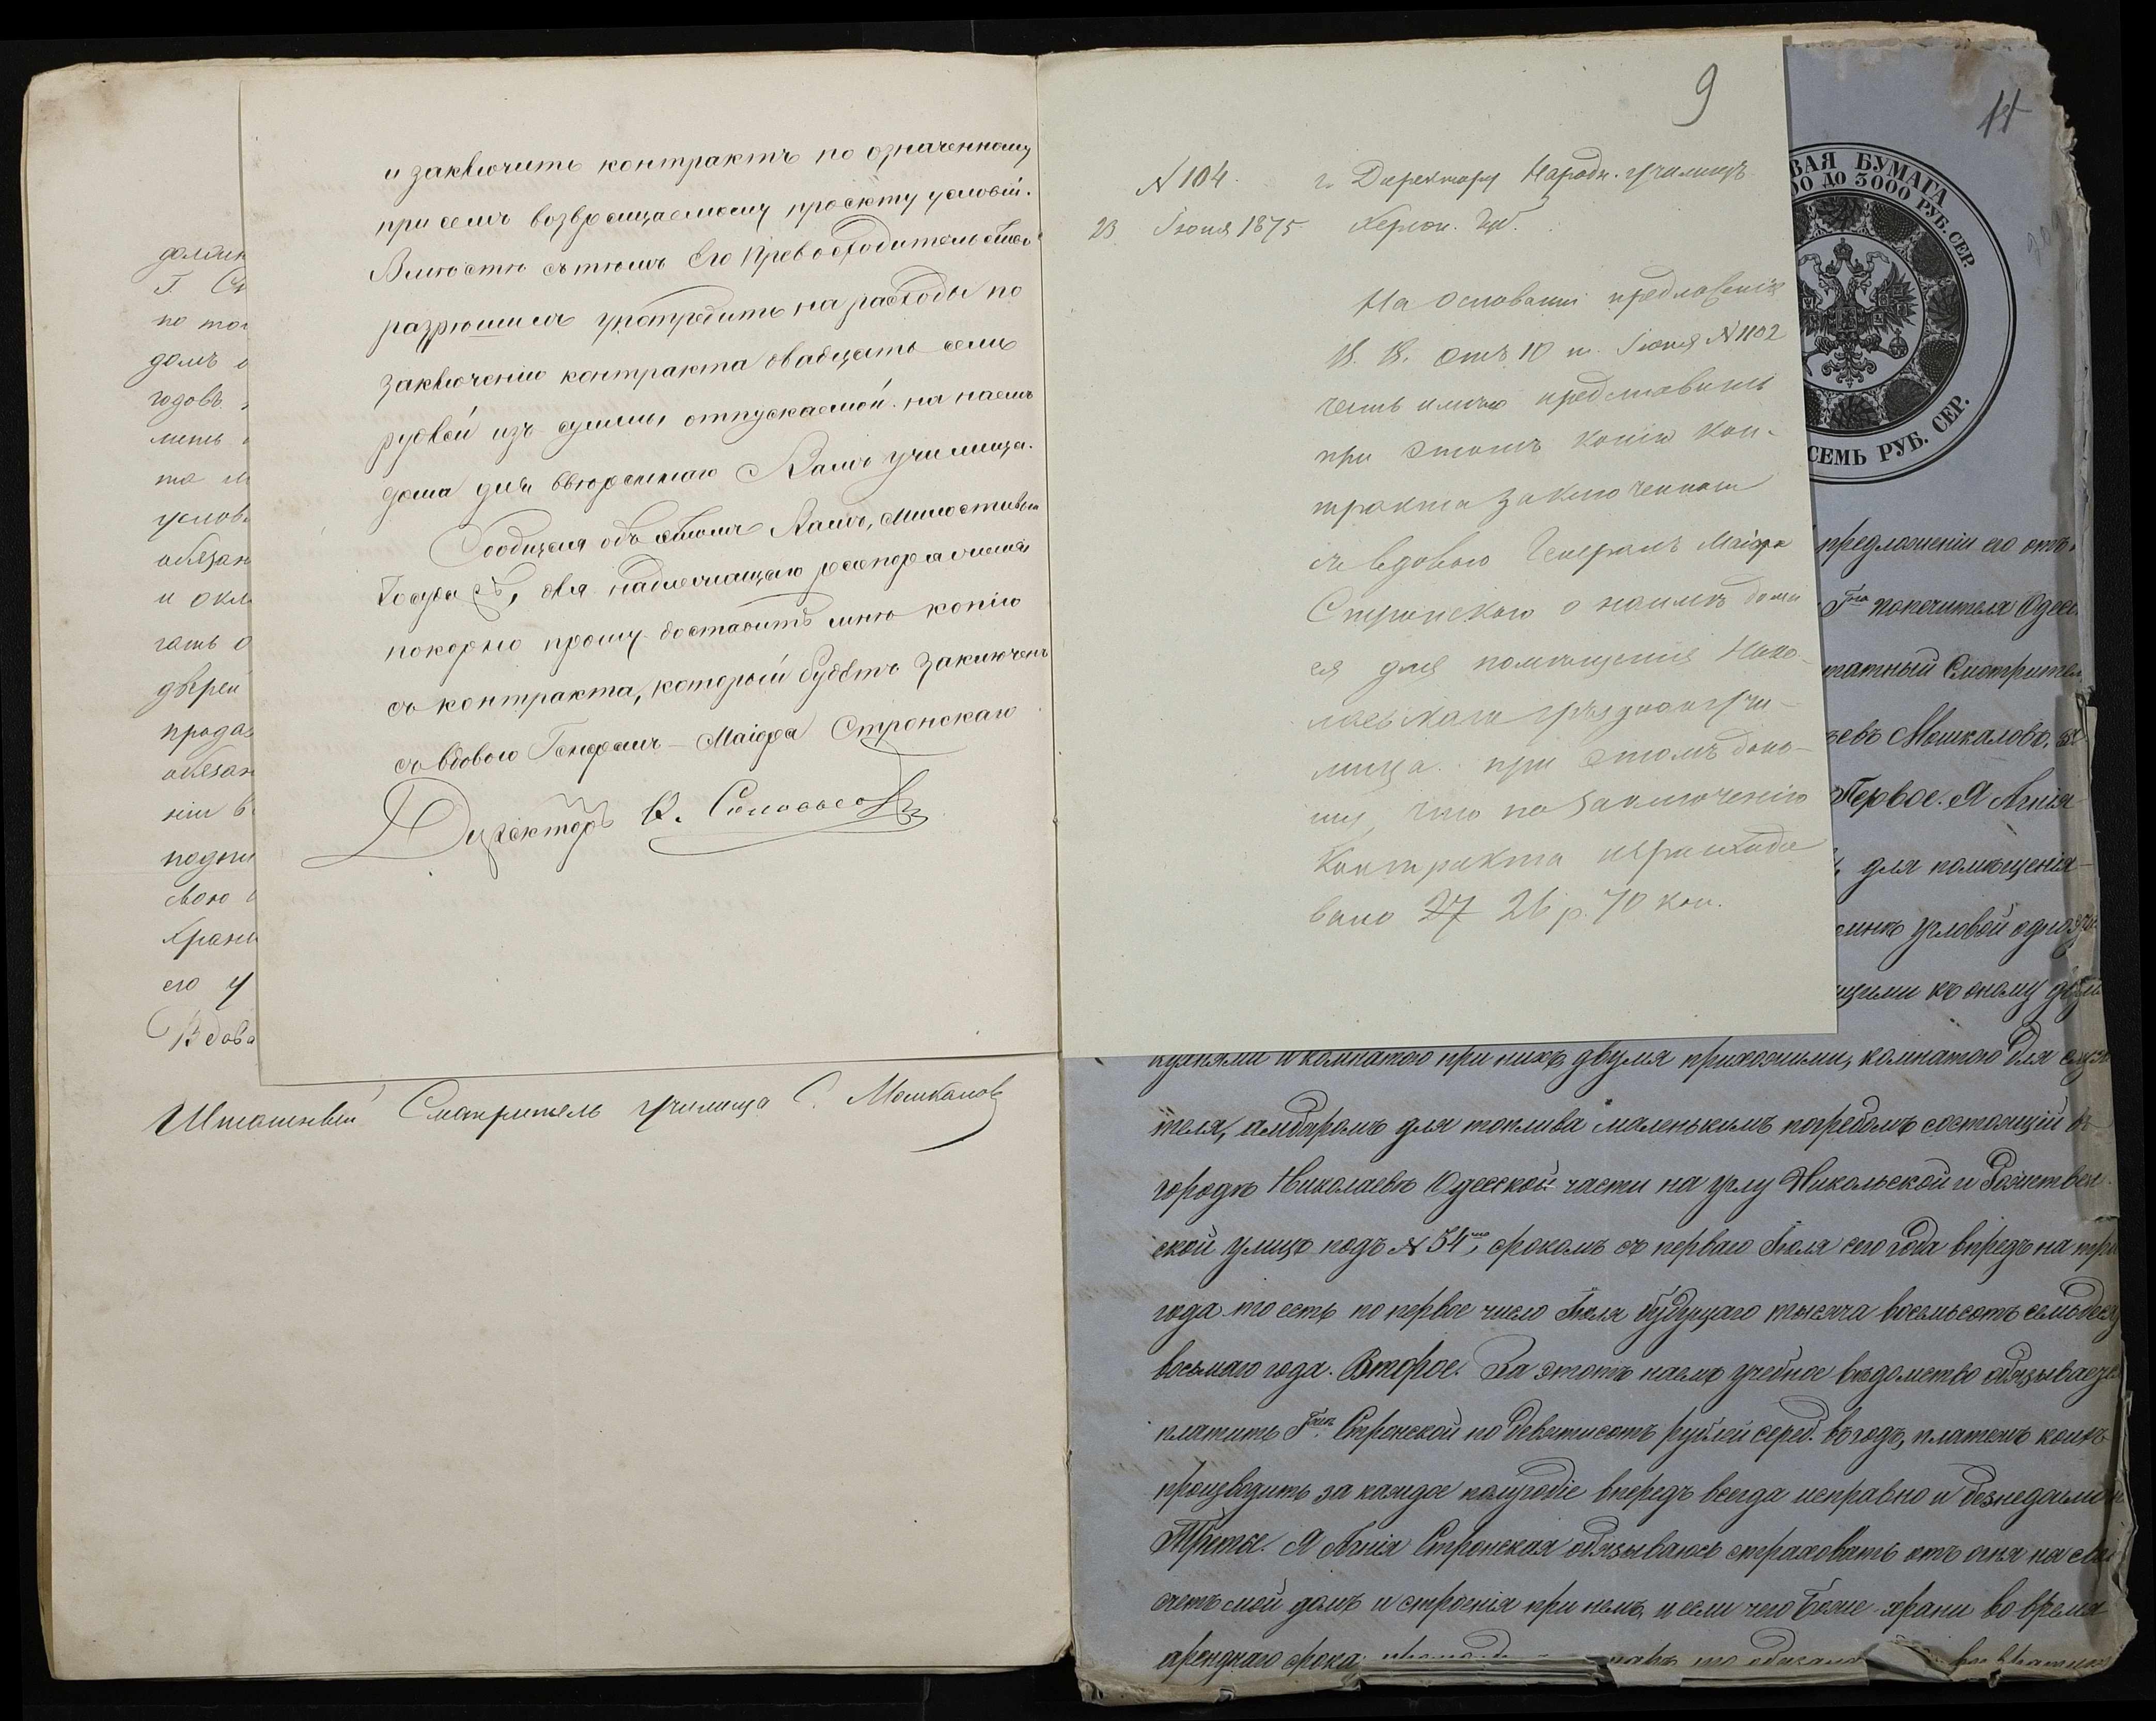 и заключить контрактъ по означенному
при семъ возвращаемому проэкту условій.
Вмѣстѣ съ тѣмъ Его Превосходительство
разрѣшилъ употребить на расходы по
заключенію контракта двадцать семь
рублей изъ суммы отпускаемой на наемъ
дома для ввѣреннаго Вамъ училища.
Сообщая объ этомъ Вамъ, Милостивый
Государь, для надлежащаго распоряженія
покорно прошу доставить мнѣ копію
съ контракта, который будетъ заключенъ
съ вдовою Генералъ-Маіора Стронскаго
Директоръ
должн
Г. См
по то
домъ о
годовъ
лить
та
услов
обязан
и окл
гать о
дверей
прода
обязан
ніи в
подпи
свою
хран
его у
Вдова
Штатный Смотритель училища С. Мошкалов
9
N 104.
23 Іюня 1875
г. Директору Народн. училищъ
Херсон. Губ.
На основаніи предложенія
В. В. отъ 10 п. Іюня N 1102
честь имѣю представить
при этомъ копію кон-
тракта заключеннаго
съ вдовою Генералъ Маіора
Стронскаго о наимѣ дома
ея для помѣщенія Нико-
лаевскаго уѣзднаго учи-
лища. при этомъ доно-
шу, что по заключенію
Контракта израсходо
вано 27 26 р. 70 коп.
11
ВАЯ БУМАГА
00 ДО 3000 РУБ. СЕР.
СЕМЬ РУБ. СЕР.
предложенія его отъ
попечителя Одес
татный Смотрител
евъ Мошкаловъ,
Первое. Я Агнія
для помѣщенія
угловой одно
щими къ оному
кухнями и комнатою при нихъ двумя прихожими, комнатою для служи
теля, амбаромъ для топлива маленькимъ погребомъ состоящій въ
городѣ Николаевѣ Одесской части на углу Никольской и Рождествен
ской улицъ подъ N 54, срокомъ съ перваго Іюля сего года впредь на три
года то есть по первое число Іюля будущаго тысяча восемьсотъ семьдеся
восьмаго года. Второе. За этотъ наемъ учебное вѣдомство обязывается
платить Стронской по девятисотъ рублей сереб. въ годъ, платежъ коихъ
производить за каждое полугодіе впередъ всегда исправно и безнедоимо
Третье. Я Агнія Стронская обязываюсь страховать отъ огня на свой
счетъ мой домъ и строенія при немъ, и если чего Боже храни во время
аренднаго срока